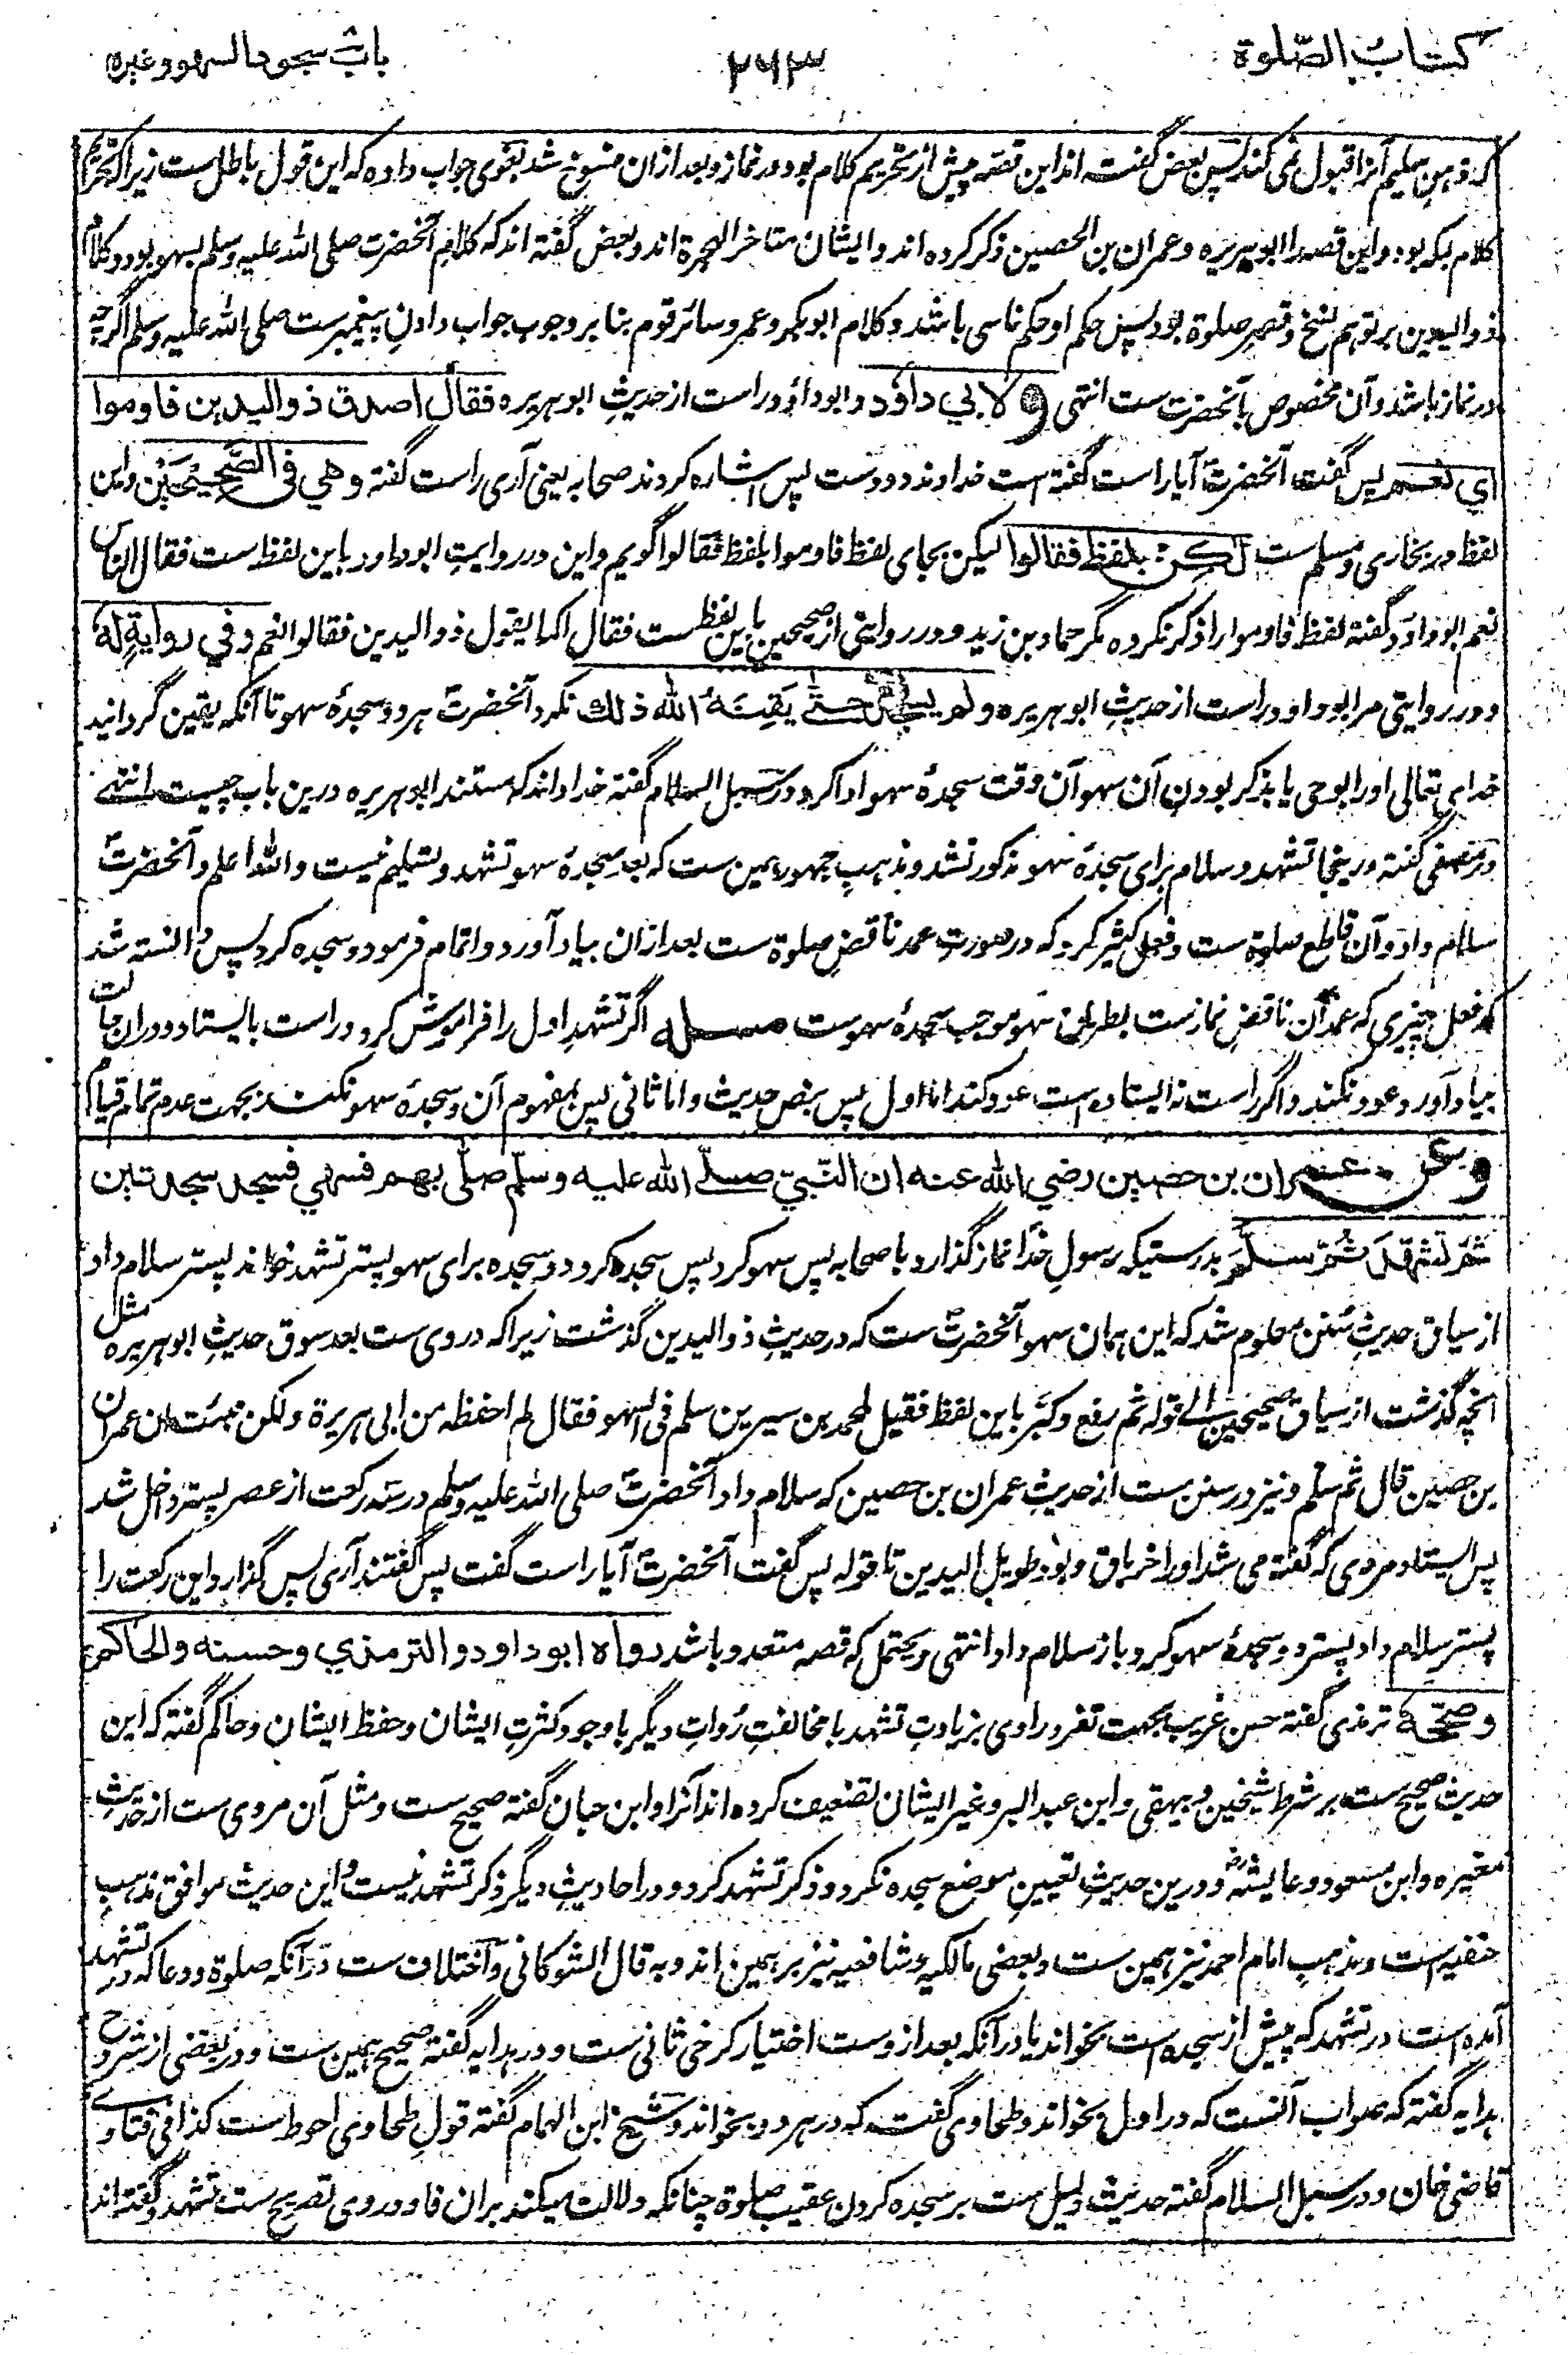 کتاب الصّلوة
۲۶۳
باب سجود السهو وغیره
که ذهن سلیم آنرا قبول نمی کند پس بعض گفته اند این قصه پیش از تحریم کلام بود در نماز و بعد ازان منسوخ شد بغوی جواب داده که این قول باطل ست زیرا که تحریم
کلام بمکه بود و این قصه را ابو هریره و عمران بن الحصین ذکر کرده اند و ایشان متاخر الهجرة اند و بعض گفته اند که کلام آنحضرت صلی الله علیه وسلم بسهو بود و کلام
ذوالیدین بر توهم نسخ و قصر صلوة بود پس حکم او حکم ناسی باشد و کلام ابوبکر و عمر و سائر قوم بنا بر وجوب جواب دادن پیغمبر ست صلی الله علیه وسلم اگرچه
در نماز باشد و آن مخصوص بآنحضرت ست انتهی و لابي داؤد و ابوداؤد راست از حدیث ابو هریره فقال اصدق ذوالیدین فاوموا
اي نعم پس گفت آنحضرت آیا راست گفته است خداوند دو دست پس اشاره کردند صحابه یعنی آری راست گفته وهي فی الصَّحِیْحَیْنِ و این
لفظ در بخاری و مسلم ست لکن بلفظ فقالوا لیکن بجای لفظ فاوموا بلفظ فقالوا گویم و این در روایت ابوداود باین لفظ ست فقال الناس
نعم ابوداؤد گفته لفظ فاوموا را ذکر نکرده مگر حماد بن زید و در روایتی از صحیحین باین لفظ ست فقال اکما یقول ذوالیدین فقالوا نعم وفي روایةٍ له
و در روایتی مر ابوداود راست از حدیث ابو هریره ولم یسجد حتّی یَقَّنَهُ الله ذلك نکرد آنحضرت هر دو سجدهٔ سهو تا آنکه یقین گردانید
خدای تعالی او را بوحی یا بذکر بودن آن سهو آن وقت سجدهٔ سهو ادا کرد و در سبل السلام گفته خدا داند که مستند ابو هریره درین باب چیست انتهے
و در مصفی گفته درینجا تشهد و سلام برای سجدهٔ سهو مذکور نشد و مذهب جمهور همین ست که بعد سجدهٔ سهو تشهد و تسلیم نیست والله اعلم و آنحضرت
سلام داد و آن قاطع صلوة ست و فعل کثیر کرد که در صورت عمد ناقض صلوة ست بعد ازان بیاد آورد و اتمام فرمود و سجده کرد پس دانسته شد
که فعل چیزی که عمد آن ناقض نماز ست بطریق سهو موجب سجدهٔ سهو ست مسئله اگر تشهد اول را فراموش کرد و راست بایستاد و دران حالت
بیاد آورد عود نکند و اگر راست نه ایستاده است عود کند اما اول پس بنص حدیث و اما ثانی پس بمفهوم آن و سجدهٔ سهو نکند بجهت عدم تمام قیام
وعن عمران بن حصین رضي الله عنه ان النّبيّ صلّے الله علیه وسلّم صلّی بهم فسهي فسجد سجدتین
ثمّ تشهّدَ ثُمّ سلّمَ بدرستیکه رسول خدا نماز گذارد با صحابه پس سهو کرد پس سجده کرد دو سجده برای سهو پستر تشهد خواند پستر سلام داد
از سیاق حدیث سنن معلوم شد که این همان سهو آنحضرت ست که در حدیث ذوالیدین گذشت زیرا که در وی ست بعد سوق حدیث ابو هریره مثل
آنچه گذشت از سیاق صحیحین الے قوله ثم رفع وکبّر باین لفظ فقیل لمحمد بن سیرین سلم فی السهو فقال لم احفظه من ابی هریرة ولکن نبئت ان عمران
بن حصین قال ثم سلم و نیز در سنن ست از حدیث عمران بن حصین که سلام داد آنحضرت صلی الله علیه وسلم در سه رکعت از عصر پستر داخل شد
پس ایستاد مردی که گفته می شد او را خرباق و بود طویل الیدین تا قوله پس گفت آنحضرت آیا راست گفت پس گفتند آری پس گذارد این رکعت را
پستر سلام داد پستر دو سجدهٔ سهو کرد و باز سلام داد انتهی و یحتمل که قصه متعدد باشد رواه ابوداود والترمذي وحسنه والحاکم
وصحّحه ترمذی گفته حسن غریب بجهت تفرد راوی بزیادت تشهد با مخالفت رُوات دیگر باوجود کثرت ایشان و حفظ ایشان و حاکم گفته که این
حدیث صحیح ست بر شرط شیخین و بیهقی و ابن عبدالبر و غیر ایشان تضعیف کرده اند آنرا و ابن حبان گفته صحیح ست و مثل آن مروی ست از حدیث
مغیره و ابن مسعود و عایشه و درین حدیث تعیین موضع سجده نکرد و ذکر تشهد کرد و در احادیث دیگر ذکر تشهد نیست و این حدیث موافق مذهب
حنفیه است و مذهب امام احمد نیز همین ست و بعضی مالکیه و شافعیه نیز بر همین اند و به قال الشوکانی و اختلاف ست در آنکه صلوة و دعا که در تشهد
آمده است در تشهد که پیش از سجده است بخواند یا در آنکه بعد از وست اختیار کرخی ثانی ست و در هدایه گفته صحیح همین ست و در بعضی از شروح
هدایه گفته که صواب آنست که در اول بخواند و طحاوی گفت که در هر دو بخواند و شیخ ابن الهمام گفته قول طحاوی احوط است کذا فی فتاوے
قاضی خان و در سبل السلام گفته حدیث دلیل ست بر سجده کردن عقیب صلوة چنانکه دلالت میکند بران فا و در وی تصریح ست تشهد و گفته اند